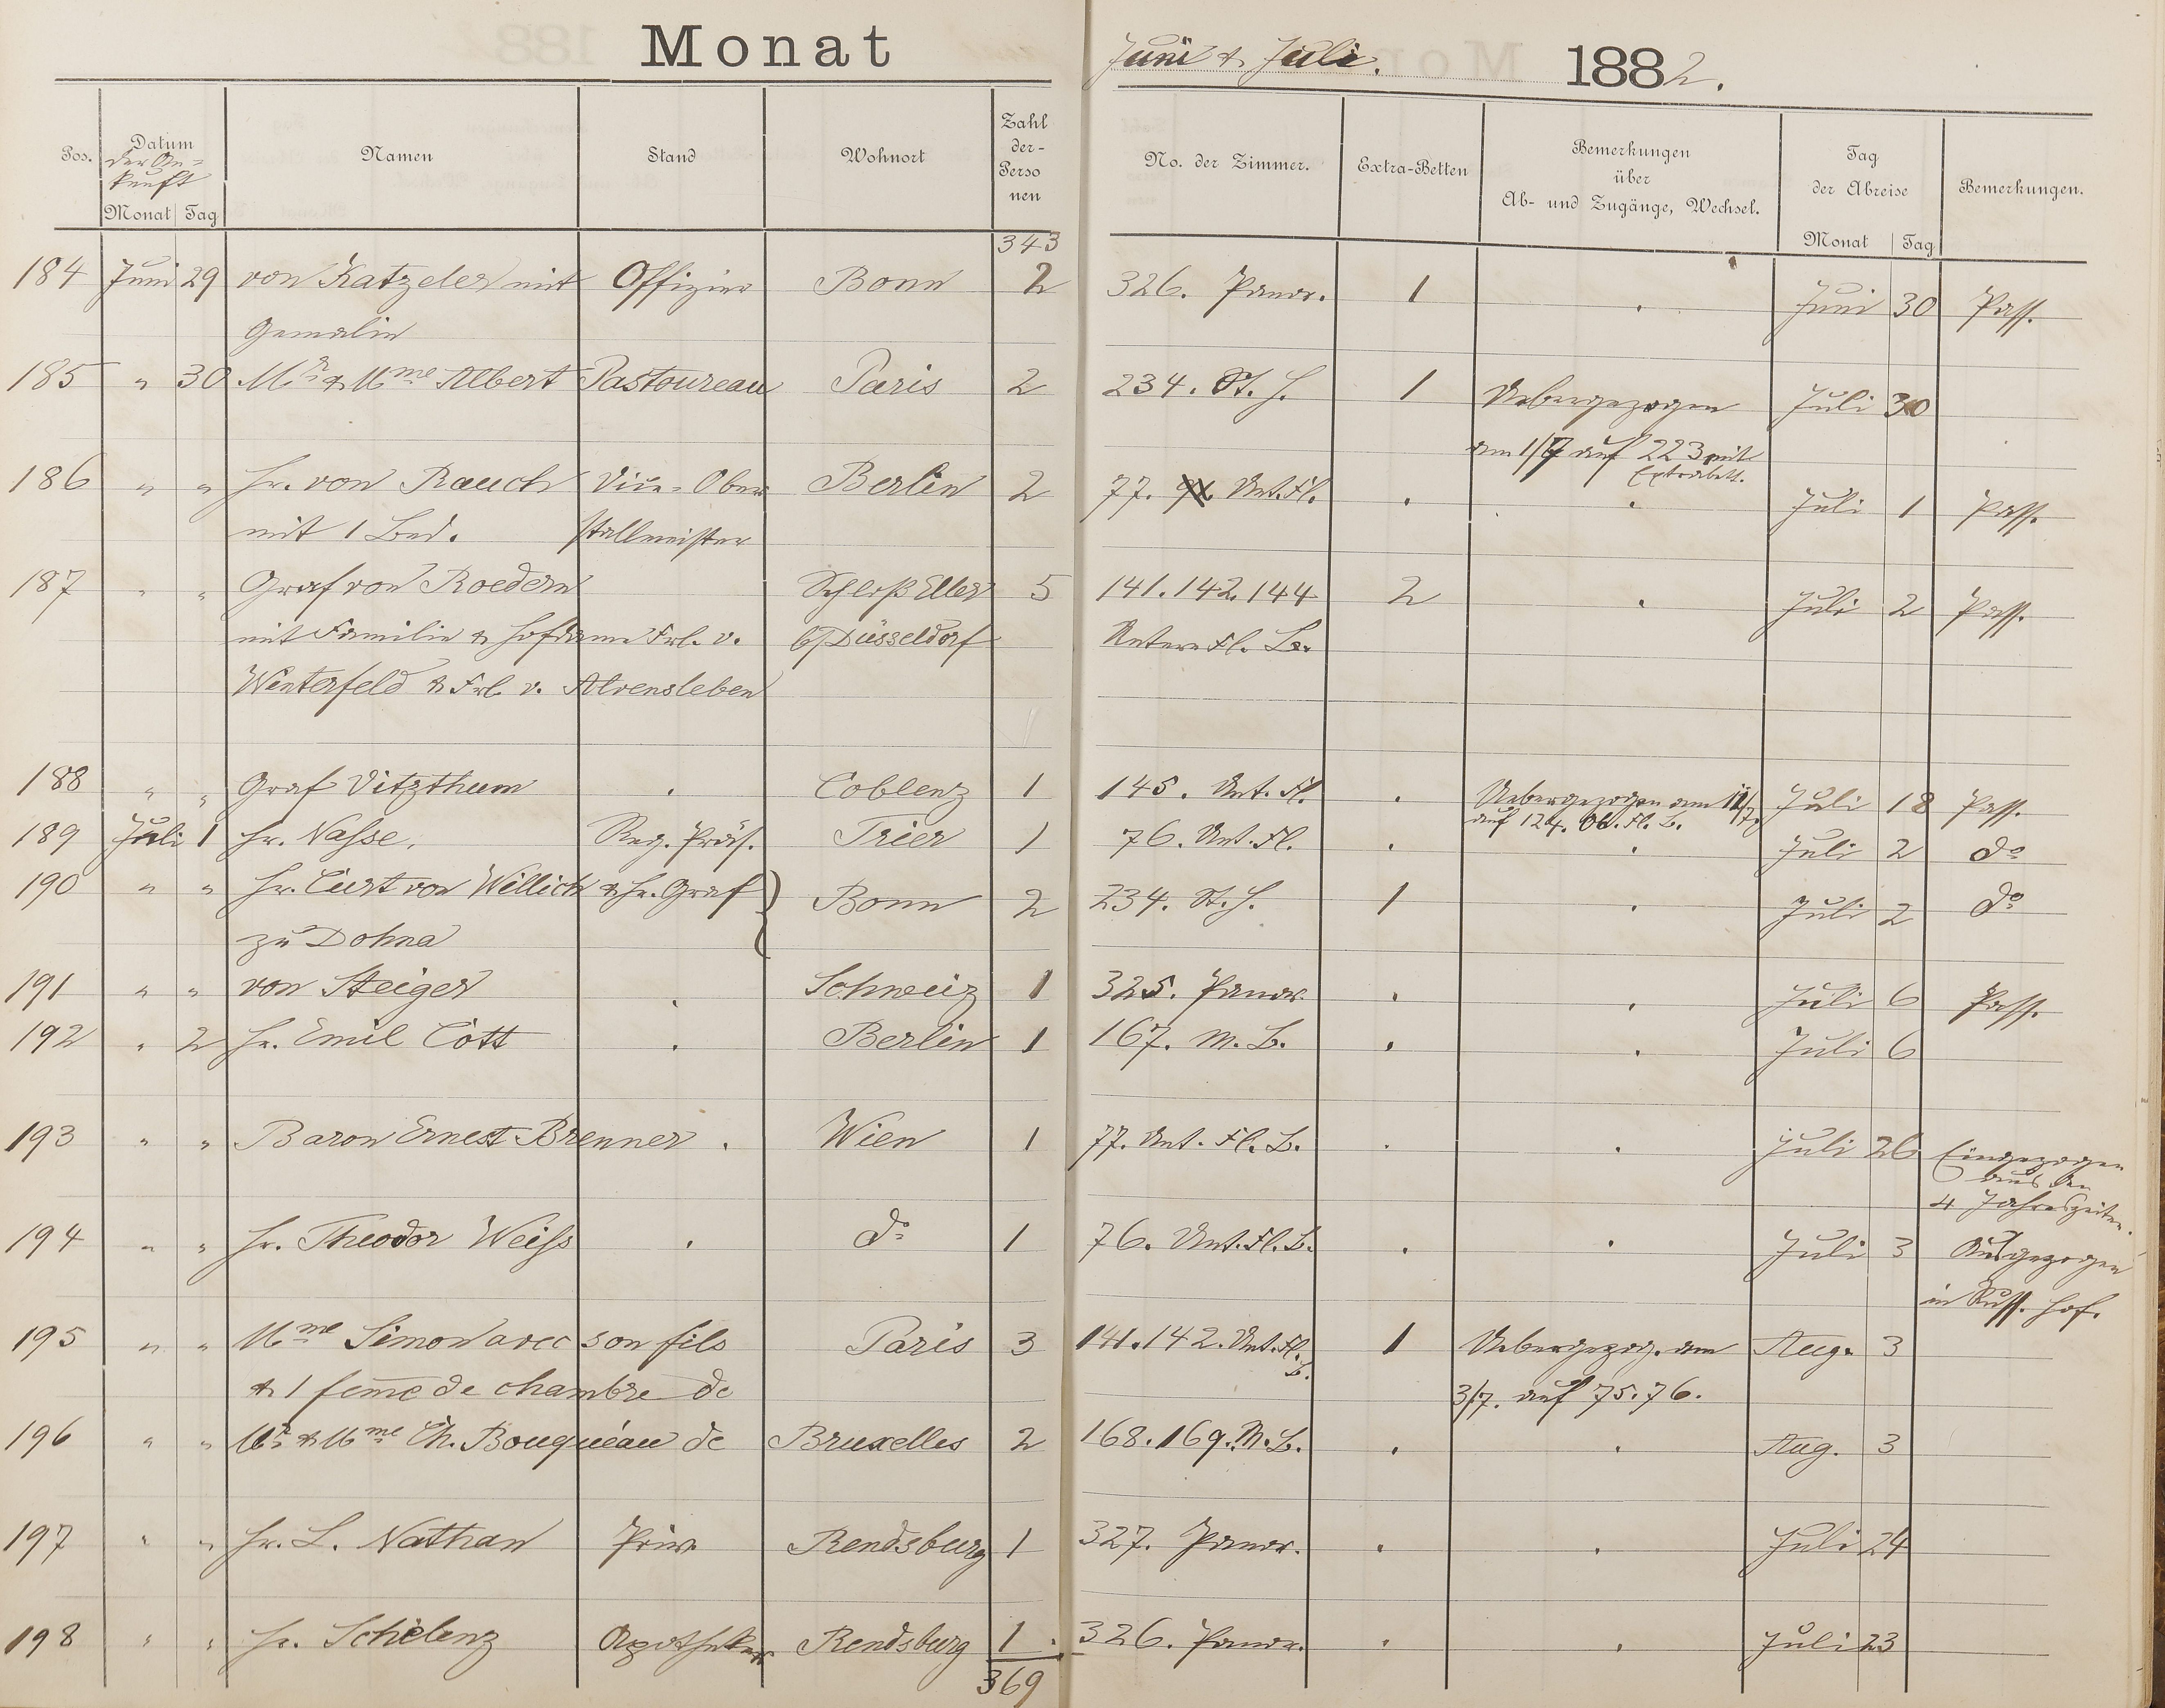 Monat Juni & Juli. 1882.
Pos. Datum der Ankunft Monat Tag Namen Stand Wohnort Zahl der Personen No. der Zimmer. Extra-Betten Bemerkungen über Ab- und Zugänge, Wechsel. Tag der Abreise Monat Tag Bemerkungen.
343
184 Juni 29 von Katzeler mit Offizier Bonn 2 326. Panor. 1 . Juni 30 Pass.
Gemalin
185 " 30 Mr. & Mme Albert Pastoureau Paris 2 234. St. H. 1 Uebergezogen Juli 30
am 1/7 auf 223 mit Extrabett.
186 " " Hr. von Rauch Vice-Ober Berlin 2 77. Unt. Fl. . . Juli 1 Pass.
mit 1 Bed. stallmeister
187 " " Graf von Roedern Schloß Eller 5 141. 142. 144 2 . Juli 2 Pass.
mit Familie & Hofdame Frl. v. b/Düsseldorf Untere Fl. Be.
Winterfeld & Frl. v. Alvensleben
188 " " Graf Vitzthum . Coblenz 1 145. Unt. Fl. . Uebergezogen am Juli 18 Pass.
auf 124. Ob. Fl. B.
189 Juli 1 Hr. Nasse. Reg. Präs. Trier 1 76. Unt. Fl. . . Juli 2 do
190 " " Hr. Curt von Willich & Hr. Graf } Bonn 2 234. St. H. 1 . Juli 2 do
zu Dohna
191 " " von Steiger . Schweiz 1 325. Panor. . . Juli 6 Pass.
192 " 2 Hr. Emil Cott . Berlin 1 167. M. B. . . Juli 6
193 " " Baron Ernest Brenner . Wien 1 77. Unt. Fl. B. . . Juli 26 Eingezogen
aus den
4 Jahreszeiten.
194 " " Hr. Theodor Weiss . do 1 76. Unt. Fl. B. . . Juli 3 Ausgezogen
in Russ. Hof.
195 " " Mme Simon avec son fils Paris 3 141. 142. Unt. Fl. B. 1 Uebergezog. am Aug. 3
& 1 feme de chambre de 3/7. auf 75. 76.
196 " " Mr. & Mme Ch. Bouquéau de Bruxelles 2 168. 169. M. B. . . Aug. 3
197 " " Hr. L. Nathan Priv. Rendsburg 1 327. Panor. . . Juli 24
198 " " Hr. Schelenz Apotheker Rendsburg 1. 326. Panor. . . Juli 23
369